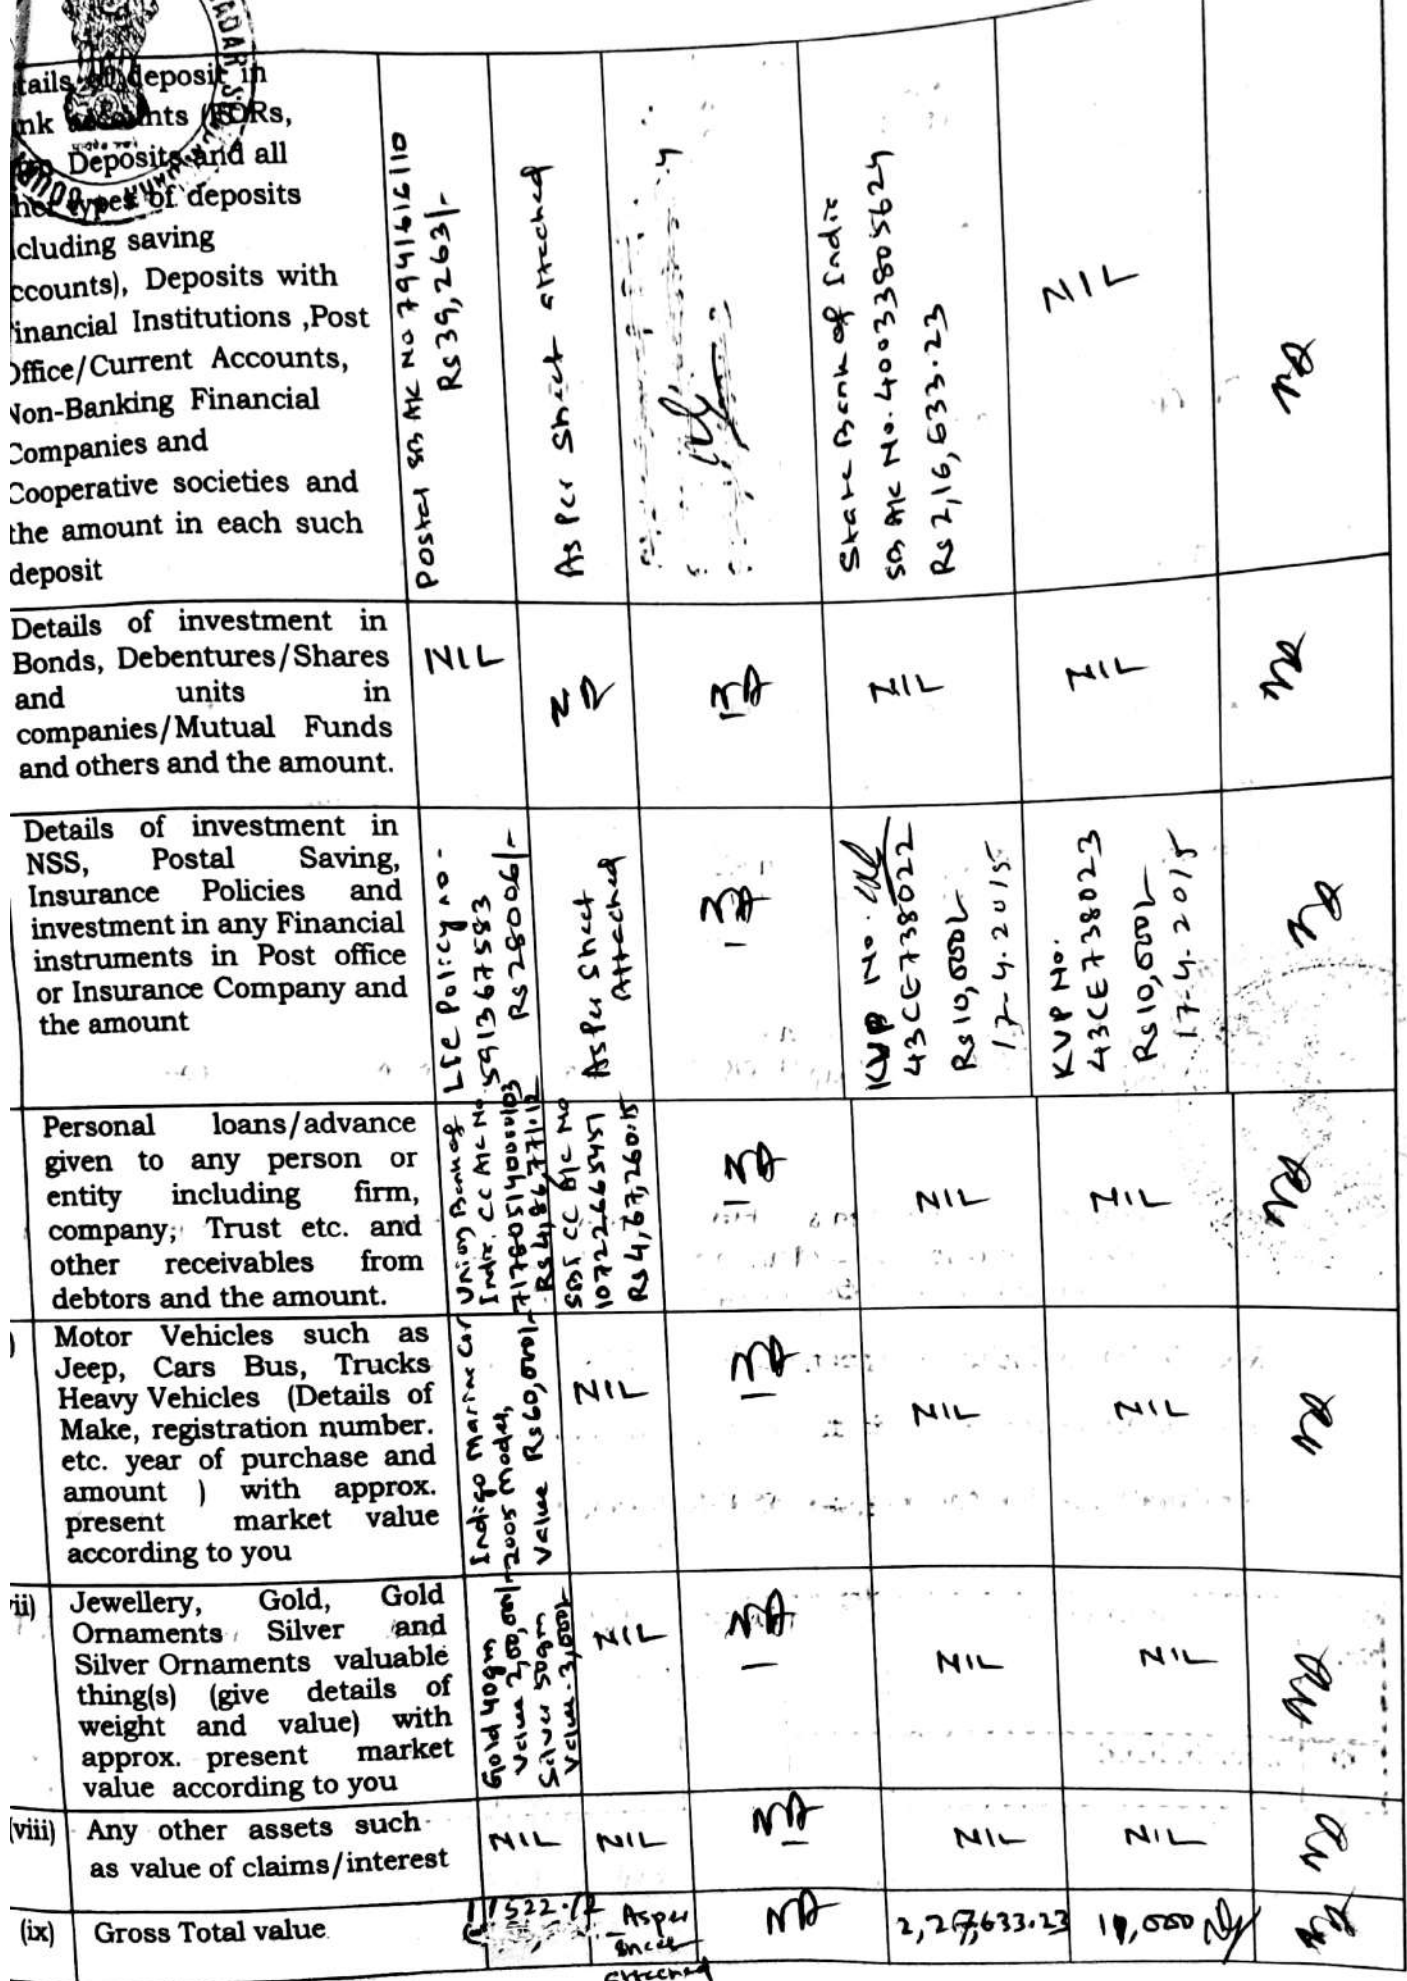 ADAR
tails of deposit in
nk accounts (FDRs,
Deposits and all
her types of deposits
cluding saving
ccounts), Deposits with
inancial Institutions ,Post
Office/Current Accounts,
Non-Banking Financial
Companies and
Cooperative societies and
the amount in each such
deposit
Postal SB A/c No 7941616110
Rs 39,263/-
As Per Sheet attached
State Bank of India
SB A/c No. 40033805624
Rs 2,16,633.23
NIL
NA
Details of investment in
Bonds, Debentures/Shares
and units in
companies/Mutual Funds
and others and the amount.
NIL
NA
NIL
NIL
NA
Details of investment in
NSS, Postal Saving,
Insurance Policies and
investment in any Financial
instruments in Post office
or Insurance Company and
the amount
LIC Policy no-
591367583
Rs 28006/-
As Per Sheet
Attached
NA
KVP No.
43CE738022
Rs 10,000/-
17-4.2015
KVP No.
43CE738023
Rs 10,000/-
17-4.2015
NA
Personal loans/advance
given to any person or
entity including firm,
company, Trust etc. and
other receivables from
debtors and the amount.
Union Bank of
India, CC A/c No
Rs 4,86,771.12
SBI CC A/c No
10722665451
Rs 4,67,260.15
NA
NIL
NIL
NA
Motor Vehicles such as
Jeep, Cars Bus, Trucks
Heavy Vehicles (Details of
Make, registration number.
etc. year of purchase and
amount ) with approx.
present market value
according to you
Indigo Marina Car
2005 Model,
Value Rs 60,000/-
NIL
NA
NIL
NIL
NA
ii)
Jewellery, Gold, Gold
Ornaments Silver and
Silver Ornaments valuable
thing(s) (give details of
weight and value) with
approx. present market
value according to you
Gold 40gm
Value 2,00,000/-
Silver 50gm
Value-3,000/-
NIL
NA
NIL
NIL
NA
(viii)
Any other assets such
as value of claims/interest
NIL
NIL
NA
NIL
NIL
NA
(ix)
Gross Total value
As per
Sheet
attached
NA
10,000
NA